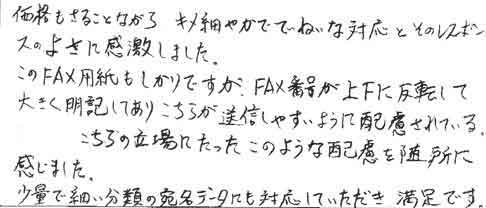 価格もさることながら キメ細やかでていねいな対応とそのレスポン
スのよさに感激しました。
このFAX用紙もしかりですが、FAX番号が上下に反転して
大きく明記してあり こちらが送信しやすいように配慮されている。
こちらの立場にたった このような配慮を随所に
感じました。
少量で細い分類の宛名データにも対応していただき 満足です。